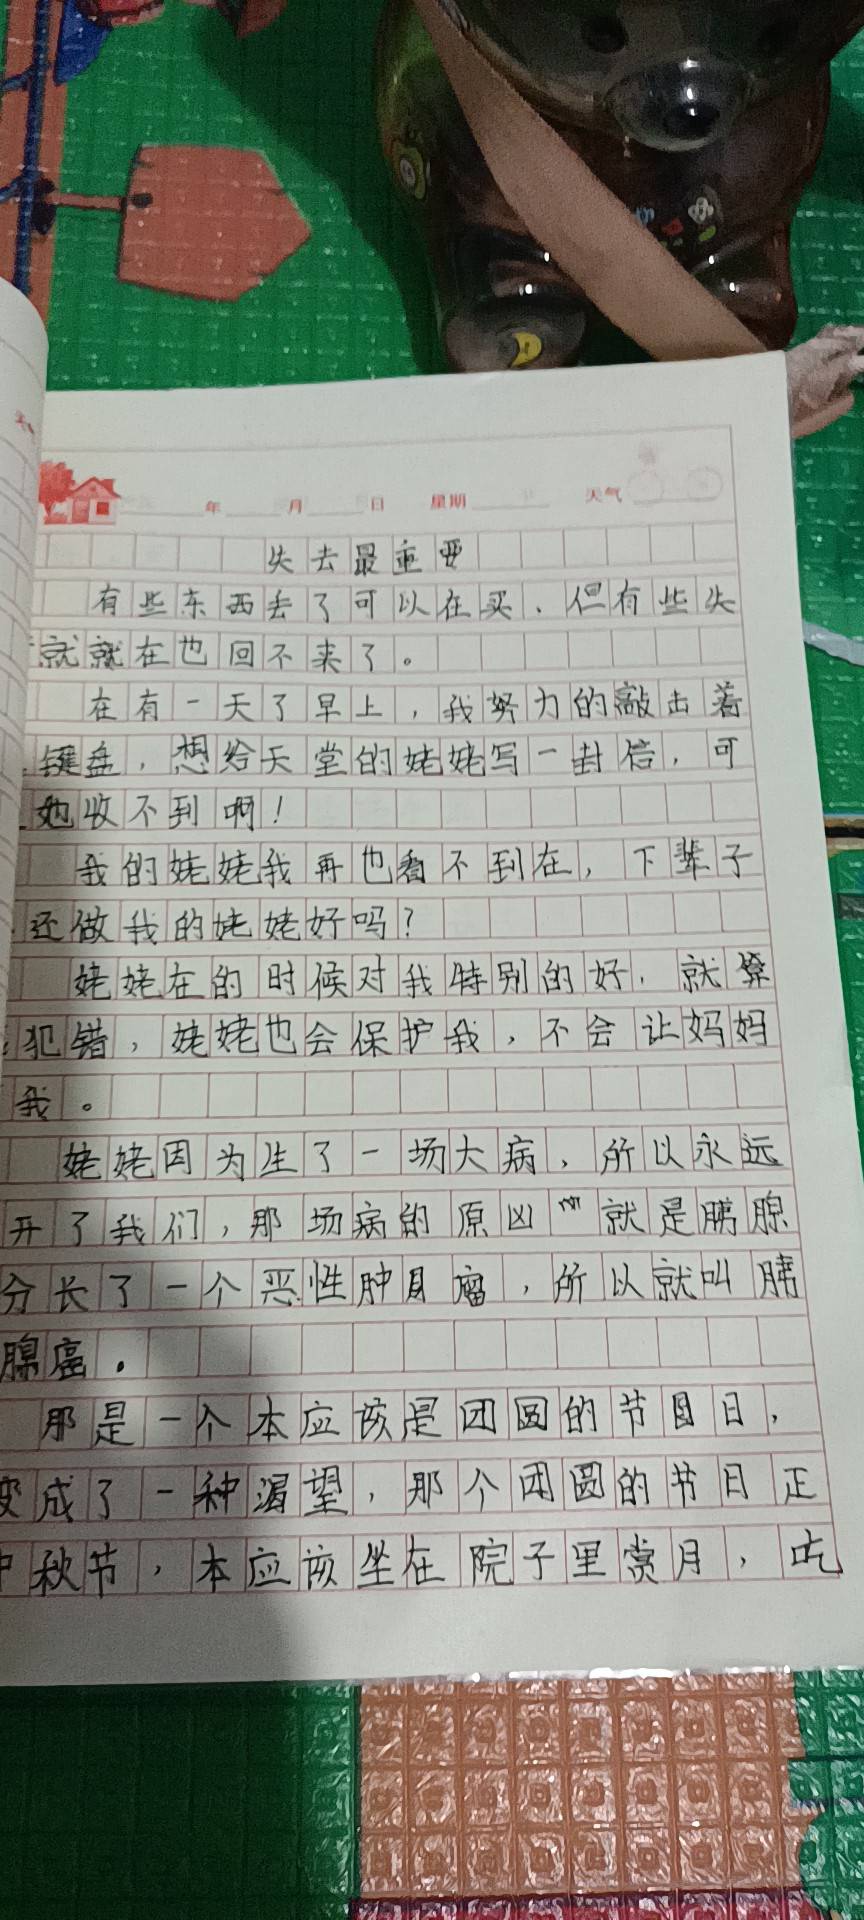 年 月 日 星期 天气
失去最重要
有些东西去了可以在买、但有些失
就就在也回不来了。
在有一天了早上，我努力的敲击着
键盘，想给天堂的姥姥写一封信，可
她收不到啊！
我的姥姥我再也看不到在，下辈子
还做我的姥姥好吗？
姥姥在的时候对我特别的好．就算
犯错，姥姥也会保护我，不会让妈妈
我。
姥姥因为生了一场大病，所以永远
开了我们，那场病的原凶 就是胰腺
分长了一个恶性肿瘤，所以就叫胰
腺癌．
那是一个本应该是团圆的节日，
变成了一种渴望，那个团圆的节日正
中秋节，本应该坐在院子里赏月，吃